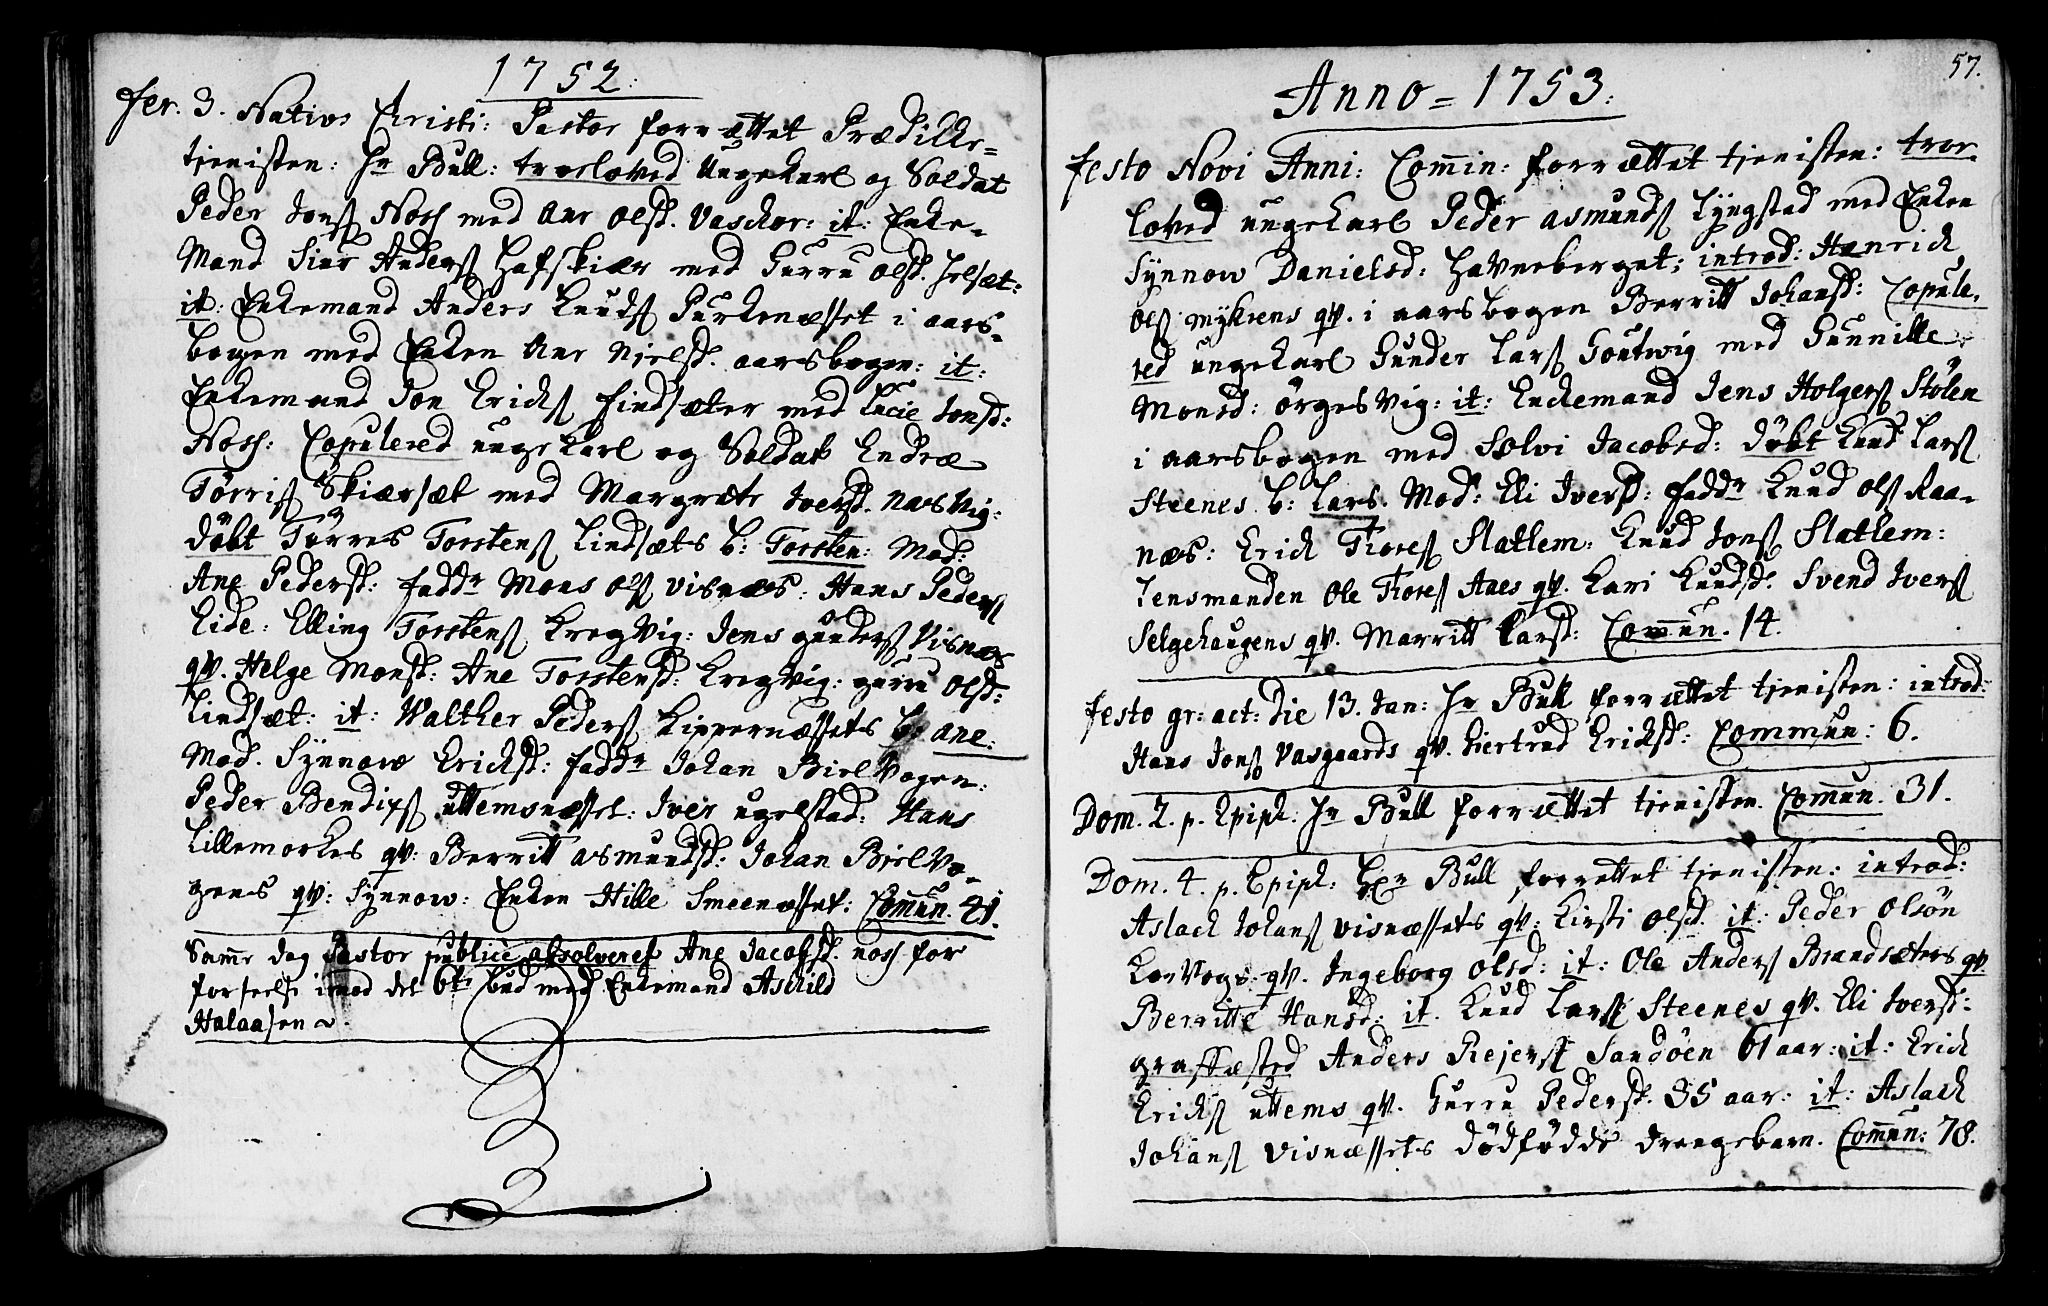 1752:
fer. 3. Nativ: Christi: Pastor forrættet Prædike-
tjenisten: Hr Bull: troeloved Ungekarl og Soldat
Peder Jons Nos med Ane Olsd. Vaschor: it: Enke-
Mand Siur Anders Hafskiær med Gurru Olsd.
it: Enkemand Anders Knuds Purkenæsset i aars-
bogen med Enken Ane Njelsd. aarsbogen: it:
Enkemand Jon Ericks Findsæter med Lucie Jonsd:
Nos: Copulered ungekarl og Soldat Endre
Törris Skiærsæt med Margrete Iversd. Nasvig:
döbt Törres Torstens Lindsæts b: Torsten: Mod:
Ane Pedersd: faddr Mons Ols Visnæs: Hans Peders
Eide: Elling Torstens Kregvig: Jens Gunders Visnæs
qv. Helge Monsd: Ane Torstensd: Kregvig: Gurru Olsd:
Lindsæt: it: Walther Peders Kippernæssets b: ane:
Mod. Synnow Ericksd: faddr Johan Bielvogen:
Peder Bendixs uttemsnæsset: Iver ugelstad: Hans
Lillemorkes qv: Berritt asmundsd: Johan Bielvo-
gens qv: Synnow: Enken Hille Smeenæsset: Comun. 41.
Samme dag Pastor publice absolveret Ane Jacobsd. nos for
forseelse imod det 6te bud med Enkemand Aschild
Halaasen
57.
Anno = 1753:
festo Novi Anni: Comin: forrættet tjenisten: troe-
loved ungekarl Peder asmunds Lyngstad med Enken
Synnow Danielsd: Havneberget; introd: Henrich
Ols mykrens qv. i aarsbogen Berritt Johansd: Copule-
red ungekarl Gunder Lars Goutwig med Gunnille
Monsd: örgesvig: it: Enckemand Jens Holgers Stölen
i aarsbogen med Solvi Jacobsd: döbt Knud Lars
Steenes b: Lars. Mod: Eli Iversd: faddr Knud Ols Raa-
næs: Erick Tores Slatlem: Knud Jons Slatlem:
Lensmanden Ole Tores Aaes qv. Kari Knudsd. Svend Ivers
Selgehaugens qv. Marritt Larsd: Comun. 14.
festo gr: act: die 13. Jan: Hr Bull forrættet tjenisten: introd:
Hans Jons Vasgaards qv. Giertrud Ericksd: Commun: 6.
Dom. 2. p. Epiph: Hr Bull forrættet tjenisten. Comun. 31.
Dom. 4. p. Epiph: Hr Bull forrettet tjenisten: introd:
Aslach Johans Visnæssets qv: Kirsti Olsd. it: Peder Olsön
Korvogs qv. Ingeborg Olsd: it: Ole Anders Brandsæters qv.
Berritte Hansd: it. Knud Lars Steenes qv. Eli Iversd:
graffæsted Anders Rejers Sandöen 61 aar: it: Erick
Ericks uttems qv. Gurru Pedersd. 35 aar: it: Aslach
Johans Visnæssets dödfödde drengebarn. Comun: 78.